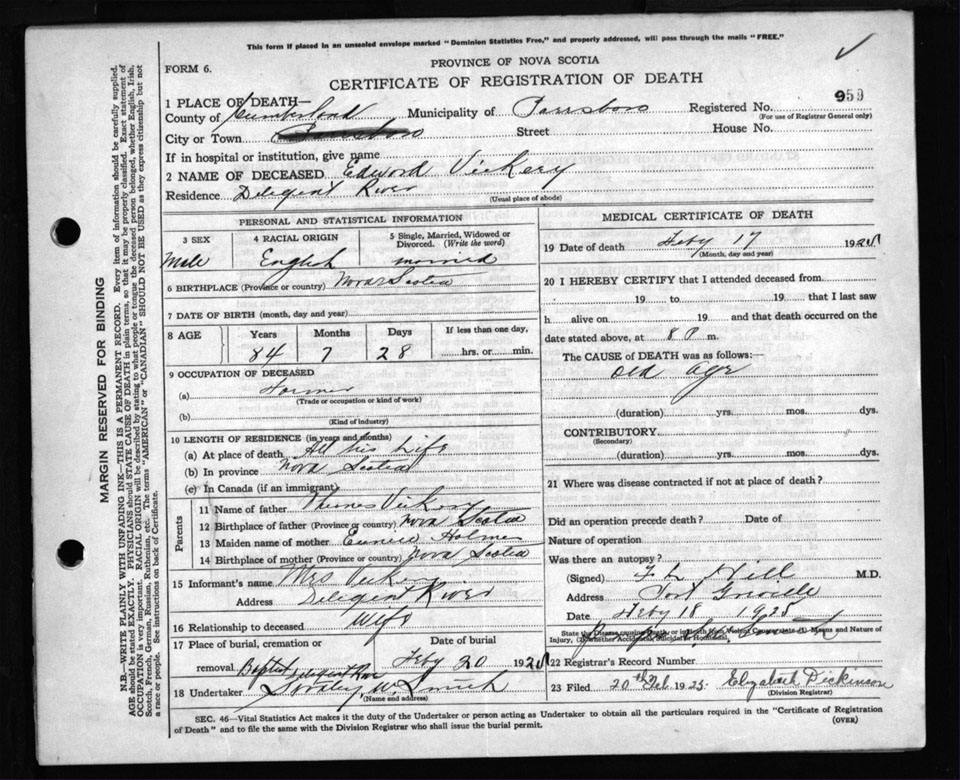 This form if placed in an unsealed envelope marked "Dominion Statistics Free," and properly addressed, will pass through the mails "FREE."
FORM 6.
PROVINCE OF NOVA SCOTIA
CERTIFICATE OF REGISTRATION OF DEATH
959
1 PLACE OF DEATH—
County of Cumberland Municipality of Parrsboro Registered No.
(For use of Registrar General only)
City or Town Parrsboro Street House No.
If in hospital or institution, give name
2 NAME OF DECEASED Edword Vickery
Residence Diligent River
(Usual place of abode)
MARGIN RESERVED FOR BINDING
N.B.—WRITE PLAINLY WITH UNFADING INK—THIS IS A PERMANENT RECORD. Every item of information should be carefully supplied.
AGE should be stated EXACTLY. PHYSICIANS should STATE CAUSE OF DEATH in plain terms, so that it may be properly classified. Exact statement of
OCCUPATION is very important. RACIAL ORIGIN will be described by stating to what people or tongue the deceased person belonged, whether English, Irish,
Scotch, French, German, Russian, Ruthenian, etc. The terms "AMERICAN" or "CANADIAN" SHOULD NOT BE USED as they express citizenship but not
a race or people. See instructions on back of Certificate.
PERSONAL AND STATISTICAL INFORMATION
3 SEX
Male
4 RACIAL ORIGIN
English
5 Single, Married, Widowed or
Divorced. (Write the word)
married
6 BIRTHPLACE (Province or country) Nova Scotia
7 DATE OF BIRTH (month, day and year)
8 AGE Years Months Days If less than one day,
84 7 28 hrs. or min.
9 OCCUPATION OF DECEASED
(a) Farmer
(Trade or occupation or kind of work)
(b)
(Kind of industry)
10 LENGTH OF RESIDENCE (in years and months)
(a) At place of death All his Life
(b) In province Nova Scotia
(c) In Canada (if an immigrant)
Parents
11 Name of father Vickery
12 Birthplace of father (Province or country) Nova Scotia
13 Maiden name of mother Eunice Holmes
14 Birthplace of mother (Province or country) Nova Scotia
15 Informant's name Mrs Vickery
Address Diligent River
16 Relationship to deceased Wife
17 Place of burial, cremation or Date of burial
removal Baptist Diligent River Feby 20 1925
18 Undertaker W. Smith
(Name and address)
MEDICAL CERTIFICATE OF DEATH
19 Date of death Feby 17 1925
(Month, day and year)
20 I HEREBY CERTIFY that I attended deceased from
19 to 19 that I last saw
h alive on 19 and that death occurred on the
date stated above, at 8 P m.
The CAUSE OF DEATH was as follows:
Old Age
(duration) yrs. mos. dys.
CONTRIBUTORY
(Secondary)
(duration) yrs. mos. dys.
21 Where was disease contracted if not at place of death?
Did an operation precede death? Date of
Nature of operation
Was there an autopsy?
(Signed) F L Hill M.D.
Address Port Greville
Date Feby 18 1925
State the Disease causing Death, or in death from Violent Causes state (1) Means and Nature of
Injury, (2) whether Accidental, Suicidal or Homicidal.
22 Registrar's Record Number
23 Filed 20th Feb 1925 Elizabeth Dickinson
(Division Registrar)
SEC. 46—Vital Statistics Act makes it the duty of the Undertaker or person acting as Undertaker to obtain all the particulars required in the "Certificate of Registration
of Death" and to file the same with the Division Registrar who shall issue the burial permit.
(OVER)